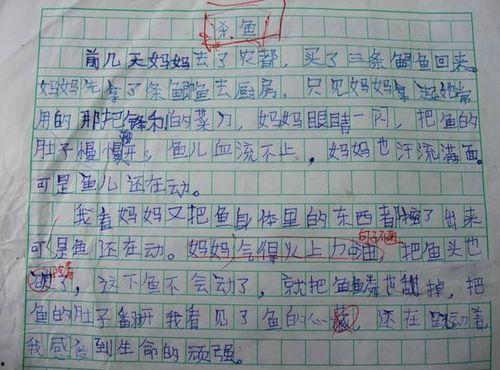 杀鱼
前几天妈妈去了农都，买了三条鲫鱼回来。
妈妈先拿了条鲫鱼去厨房。只见妈妈拿起她常
用的那把锋利的菜刀，妈妈眼睛一闪，把鱼的
肚子慢慢，鱼儿血流不止，妈妈也汗流满面。
可是鱼儿还在动。
我看妈妈又把鱼身体里的东西都了出来
可是鱼还在动。妈妈气得火上，把鱼头也
了，这下鱼不会动了，就把鱼鳞也掉，把
鱼的肚子翻开我看见了鱼的心，还在动着，
我感到生命的顽强。